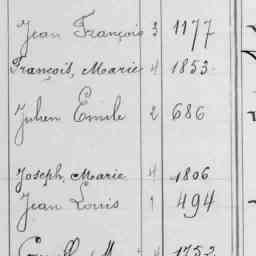 Jean François 3 1177
François, Marie 4 1853
Julien Emile 2 686
Joseph, Marie 4 1806
Jean Louis 1 494
4 1752